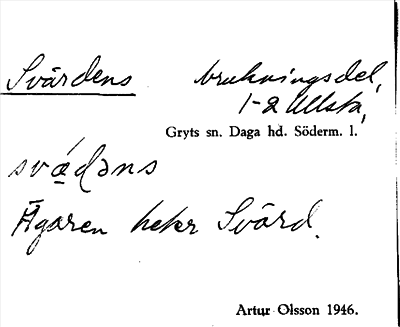 Svärdens brukningsdel,
1-2 Ullsta,
Gryts sn. Daga hd. Söderm. l.
svä́ḍəns
Ägaren heter Svärd.
Artur Olsson 1946.